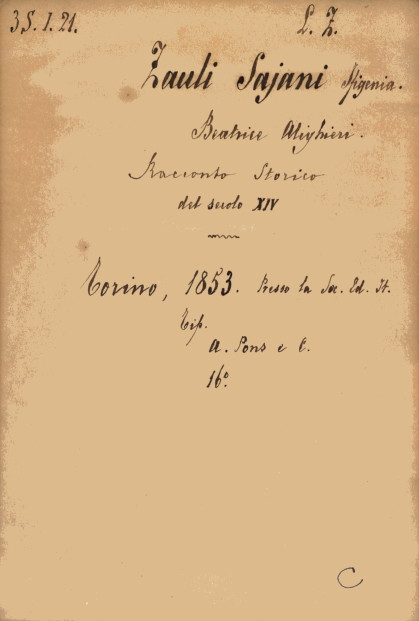 3 S. I. 21.
L. Z.
Zauli Sajani Ifigenia.
Beatrice Alighieri.
Racconto Storico
del secolo XIV
Torino, 1853. Presso la Soc. Ed. It.
Tip.
A. Pons e C.
16°.
C